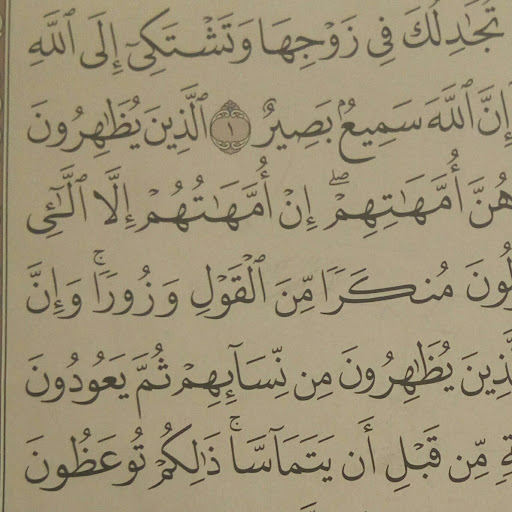 تُجَٰدِلُكَ فِي زَوۡجِهَا وَتَشۡتَكِيٓ إِلَى ٱللَّهِ
إِنَّ ٱللَّهَ سَمِيعُۢ بَصِيرٌ ١ ٱلَّذِينَ يُظَٰهِرُونَ
هُنَّ أُمَّهَٰتِهِمۡۖ إِنۡ أُمَّهَٰتُهُمۡ إِلَّا ٱلَّٰٓـِٔي
لُونَ مُنكَرٗا مِّنَ ٱلۡقَوۡلِ وَزُورٗاۚ وَإِنَّ
لَّذِينَ يُظَٰهِرُونَ مِن نِّسَآئِهِمۡ ثُمَّ يَعُودُونَ
ةٖ مِّن قَبۡلِ أَن يَتَمَآسَّاۚ ذَٰلِكُمۡ تُوعَظُونَ